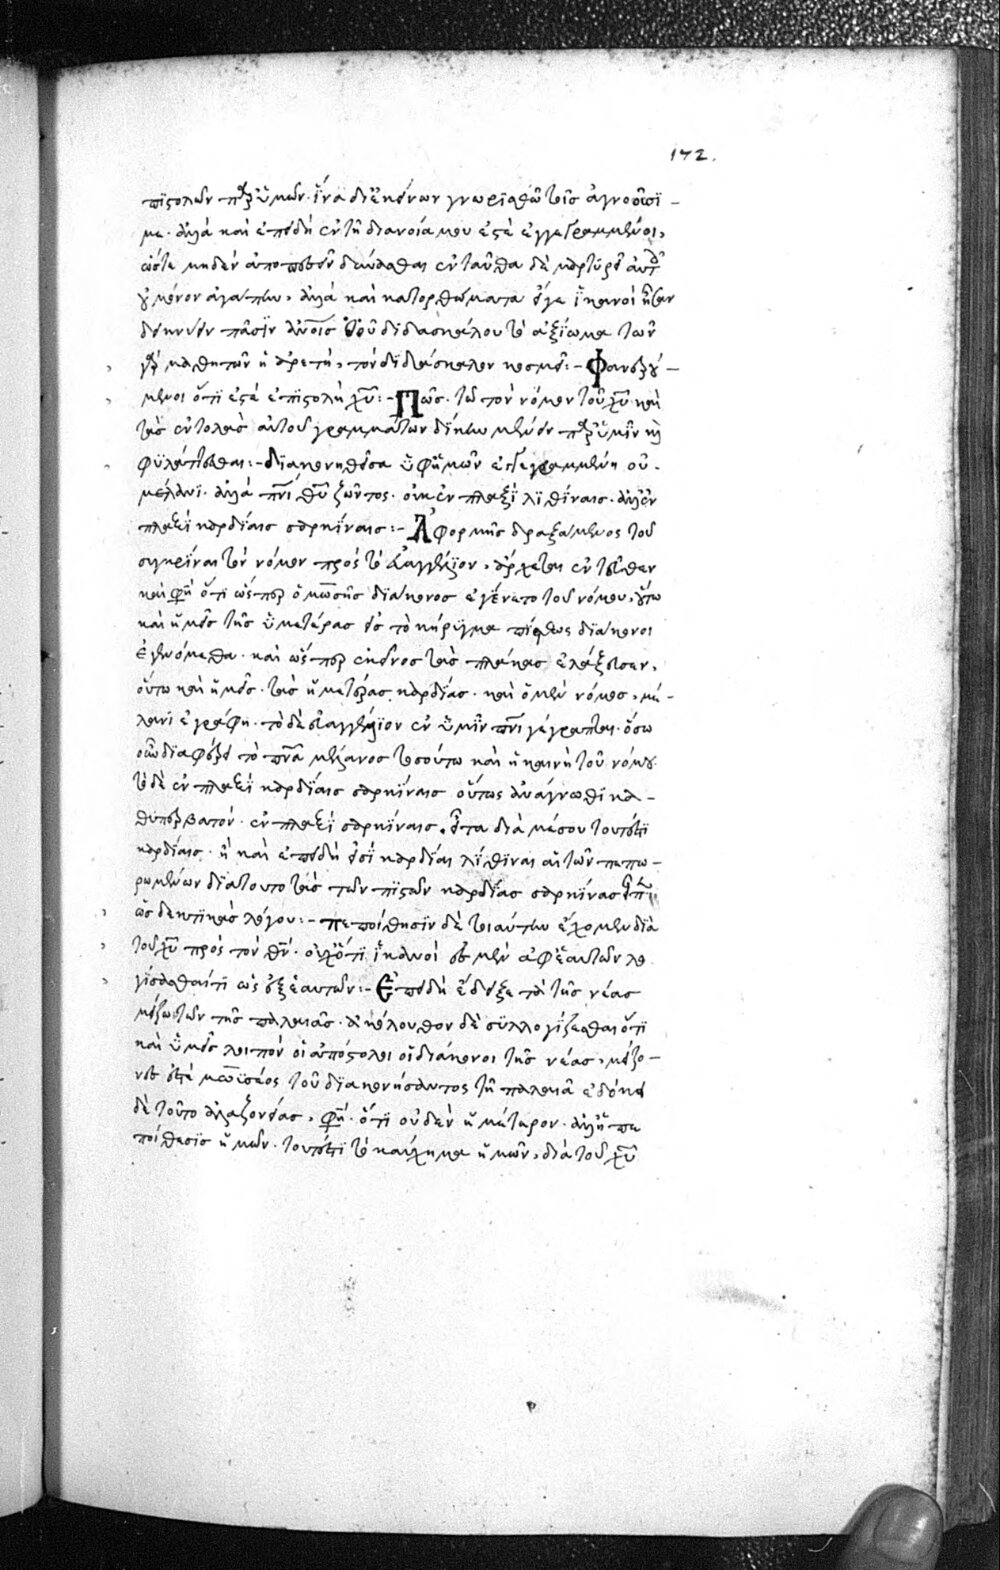 172.
πϊστολῶν παρ ὑμῶν· ἵνα δι ἐκείνων γνωρϊσθῶ τοῖς ἀγνοοῦσί
με· ἀλλὰ καὶ ἐπειδὴ ἐν τῆ διανοία μου ἐστὲ ἐγγεγραμμένοι,
ὥστε μηδὲν ἀποπεσεῖν δύνασθαι ἐνταῦθα δὲ μαρτυρεῖ αὐτοῖς
οὐ μόνον ἀγάπην, ἀλλὰ καὶ κατορθώματα εἴγε ἱκανοὶ ἦσαν
δεικνύειν πᾶσϊν ἀνοις τοῦ διδασκάλου τὸ ἀξίωμα τῶν
γὰρ μαθητῶν ἡ ἀρετὴ, τὸν δϊδάσκαλον κοσμεῖ:- Φανερού-
μενοι ὅτι ἐστὲ ἐπϊστολὴ χυ:- Πῶς· τῶ τὸν νόμον τοῦ χυ καὶ
τὰς ἐντολὰς αὐτοῦ γραμμάτων δίκην μένειν παρ ὑμῖν καὶ
φϋλάττεσθαι:- δϊακονηθεῖσα ὑφ ἡμῶν ἐγγεγραμμένη οὐ
μέλανϊ· ἀλλὰ πνι θυ ζῶντος· οὐκ ἐν πλαξὶ λϊθίναις· ἀλλ ἐν
πλαξὶ καρδίαις σαρκίναις:- Ἀφορμῆς δραξάμενος τοῦ
συγκρίναι τὸν νόμον πρὸς τὸ εὐαγγέλϊον, ἄρχεται ἐντεῦθεν
καὶ φη ὅτι ὥσπερ ὁ μωσῆς διάκονος ἐγένετο τοῦ νόμου, οὕτω
καὶ ἡμεῖς τῆς ὑμετέρας εἰς τὸ κήρυγμα πίστεως δϊάκονοι
ἐγενόμεθα· καὶ ὥσπερ ἐκεῖνος τὰς πλάκας ἐλάξευσεν,
οὕτω καὶ ἡμεῖς· τὰς ὑμετέρας καρδίας· καὶ ὁ μὲν νόμος, μέ-
λανϊ ἐγράφη· τὸ δὲ εὐαγγέλϊον ἐν ὑμῖν πνι γέγραπται· ὅσω
οὖν δϊαφέρει τὸ πνα μέλανος τοσούτω καὶ ἡ καινὴ τοῦ νόμου
τὸ δὲ ἐν πλαξὶ καρδίαις σαρκίναις οὕτως ἀνάγνωθι κα-
θυπερβατόν· ἐν πλαξὶ σαρκίναις. εἶτα διὰ μέσου τουτέστι
καρδίαις· ἢ καὶ ἐπειδὴ εἰσὶ καρδίαι λίθϊναι αἱ τῶν πεπω-
ρωμένων διατοῦτο τὰς τῶν πϊστῶν καρδίας σαρκίνας
ὡς δεκτϊκὰς λόγου:- πεποίθησϊν δὲ τοιαύτην ἔχομεν διὰ
τοῦ χυ πρὸς τὸν θν· οὐχ ὅτι ἱκανοί ἐσμεν ἀφ ἑαυτῶν λο
γίσασθαί τι ὡς ἐξ ἑαυτῶν:- Ἐπειδὴ ἔδειξε τὰ τῆς νέας
μείζω τῶν τῆς παλαιᾶς· ἀκόλουθον δὲ συλλογίζεσθαι ὅτι
καὶ ἡμεῖς λοιπὸν οἱ ἀπόστολοι οἱ διάκονοι τῆς νέας, μείζο-
νές ἐσμεν μωϋσέως τοῦ δϊακονήσαντος τῆ παλαιᾶ ἐδόκει
δὲ τοῦτο ἀλαζονείας, φη· ὅτι οὐδὲν ἡμέτερον· ἀλλ ἡ πε
ποίθησϊς ἡμῶν· τουτέστι τὸ καύχημα ἡμῶν, διὰ τοῦ χυ